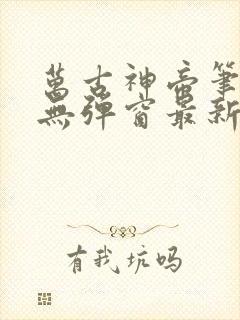 萬古神帝筆
無彈窗最新
有我坑吗